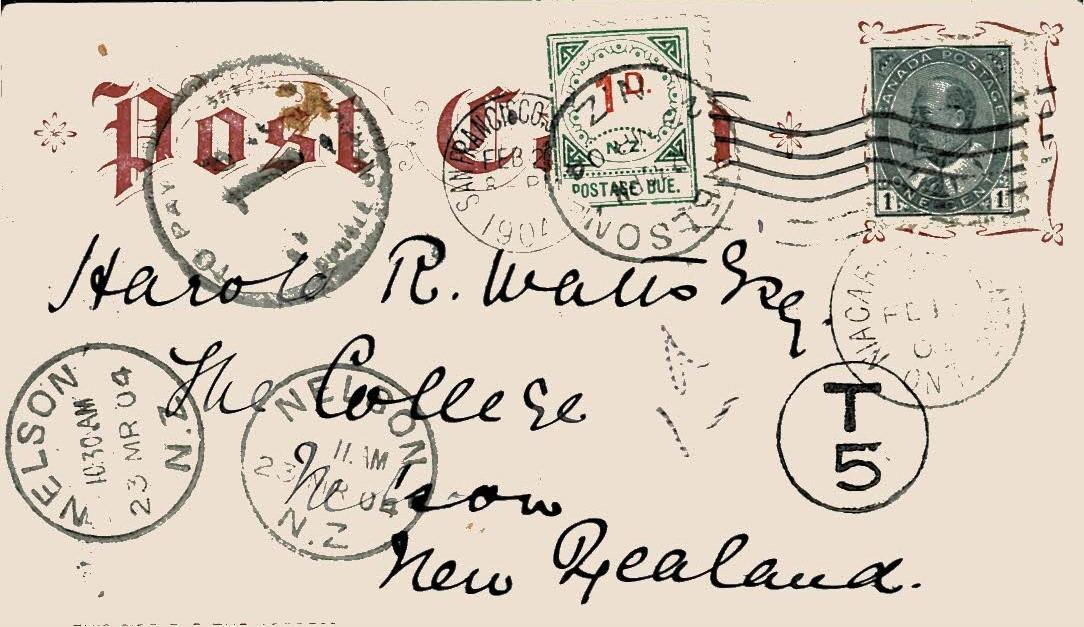 Post
1D.
N.Z.
POSTAGE DUE.
CANADA POSTAGE
1 ONE CENT 1
SAN FRANCISCO
FEB 2
1904
NELSON N.Z.
TO PAY
1
DOUBLE
Harold R. Watts Esq.
The College
Nelson
New Zealand.
NIAGAR
FE
ONT
T
5
NELSON N.Z
10.30 AM
23 MR 04
NELSON
11. AM
23 MR 04
N.Z